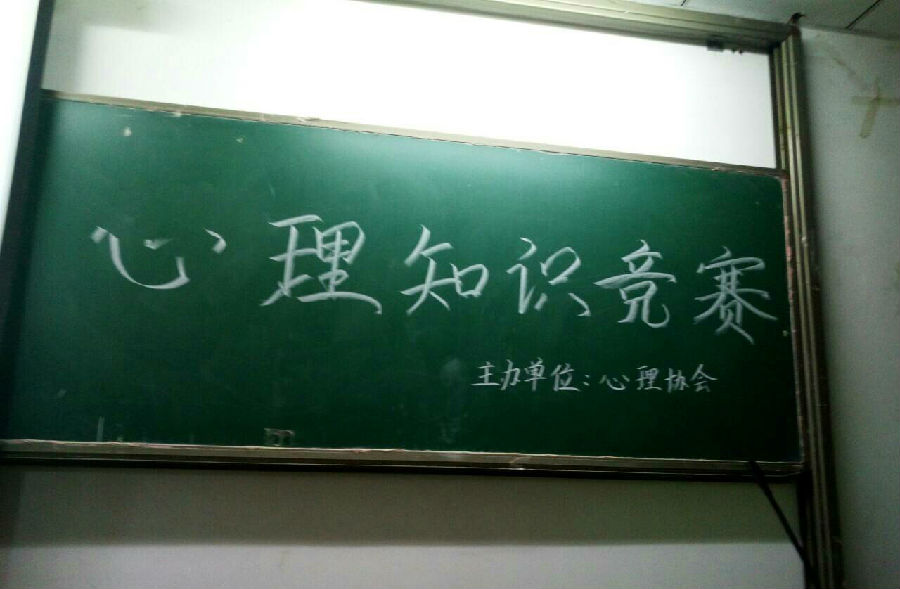 心理知识竞赛
主办单位：心理协会